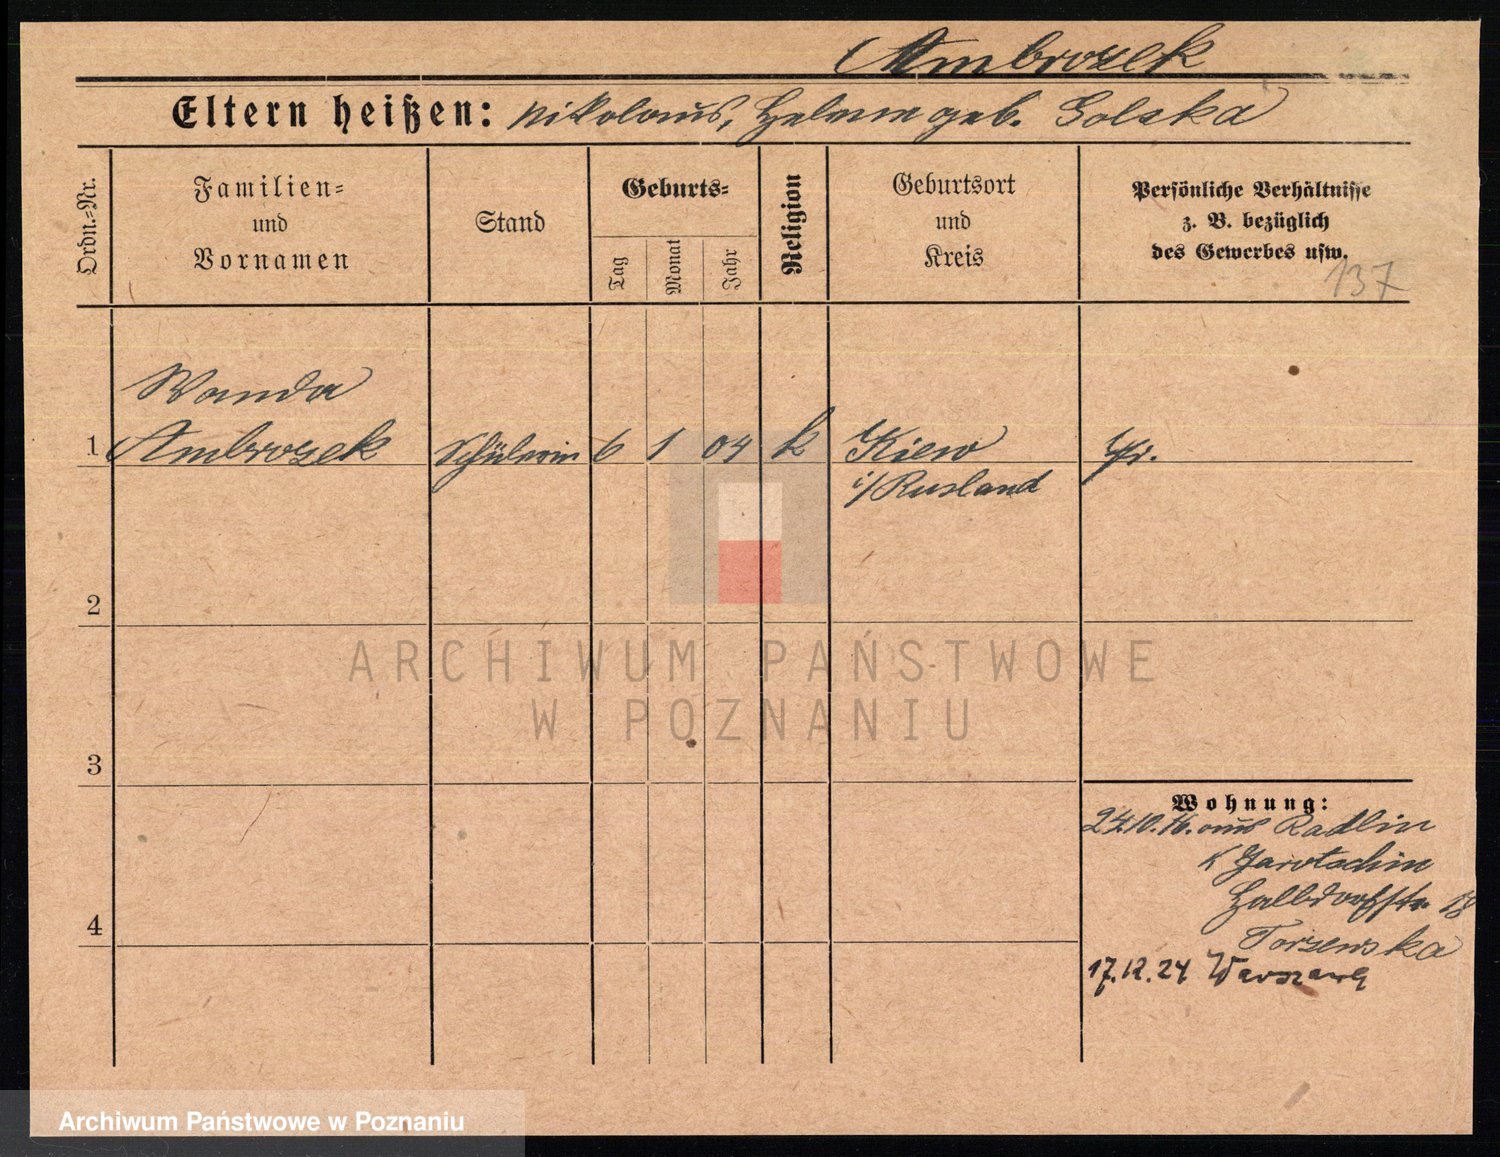 Ambrozek
Eltern heißen: Nikolaus, Helene geb. Golska
Ordn.=Nr.
Familien=
und
Vornamen
Stand
Geburts=
Tag
Monat
Jahr
Religion
Geburtsort
und
Kreis
Persönliche Verhältnisse
z. B. bezüglich
des Gewerbes usw.
137
Wanda
1 Ambrozek Schülerin 6 1 04 k Kiew Pr.
i/Rusland
2
ARCHIWUM PAŃSTWOWE
W POZNANIU
3
Wohnung:
24.10.16. aus Radlin
K Jarotschin
Halbdorfstr. 18
Torzewska
4
17.12.24 Warszawa
Archiwum Państwowe w Poznaniu